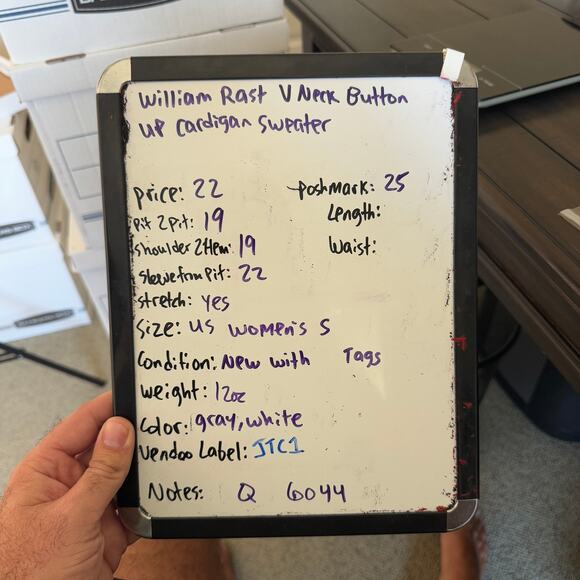 William Rast V Neck Button
up cardigan sweater
price: 22
poshmark: 25
Pit 2 Pit: 19
Length:
Shoulder 2 Hem: 19
Waist:
Sleeve from Pit: 22
stretch: yes
Size: US women's S
Condition: New with Tags
weight: 12oz
Color: gray, white
Vendoo Label: JTC1
Notes: Q 6044